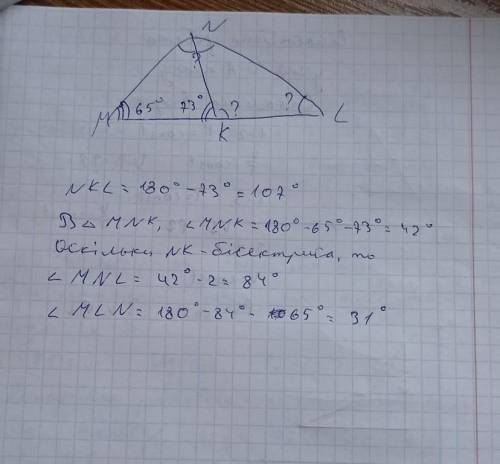 N
?
M 65° 73° ? ? L
K
NKL = 180° - 73° = 107°
В △ MNK, ∠MNK = 180° - 65° - 73° = 42°
Оскільки NK - бісектриса, то
∠ MNL = 42° · 2 = 84°
∠ MLN = 180° - 84° - 65° = 31°